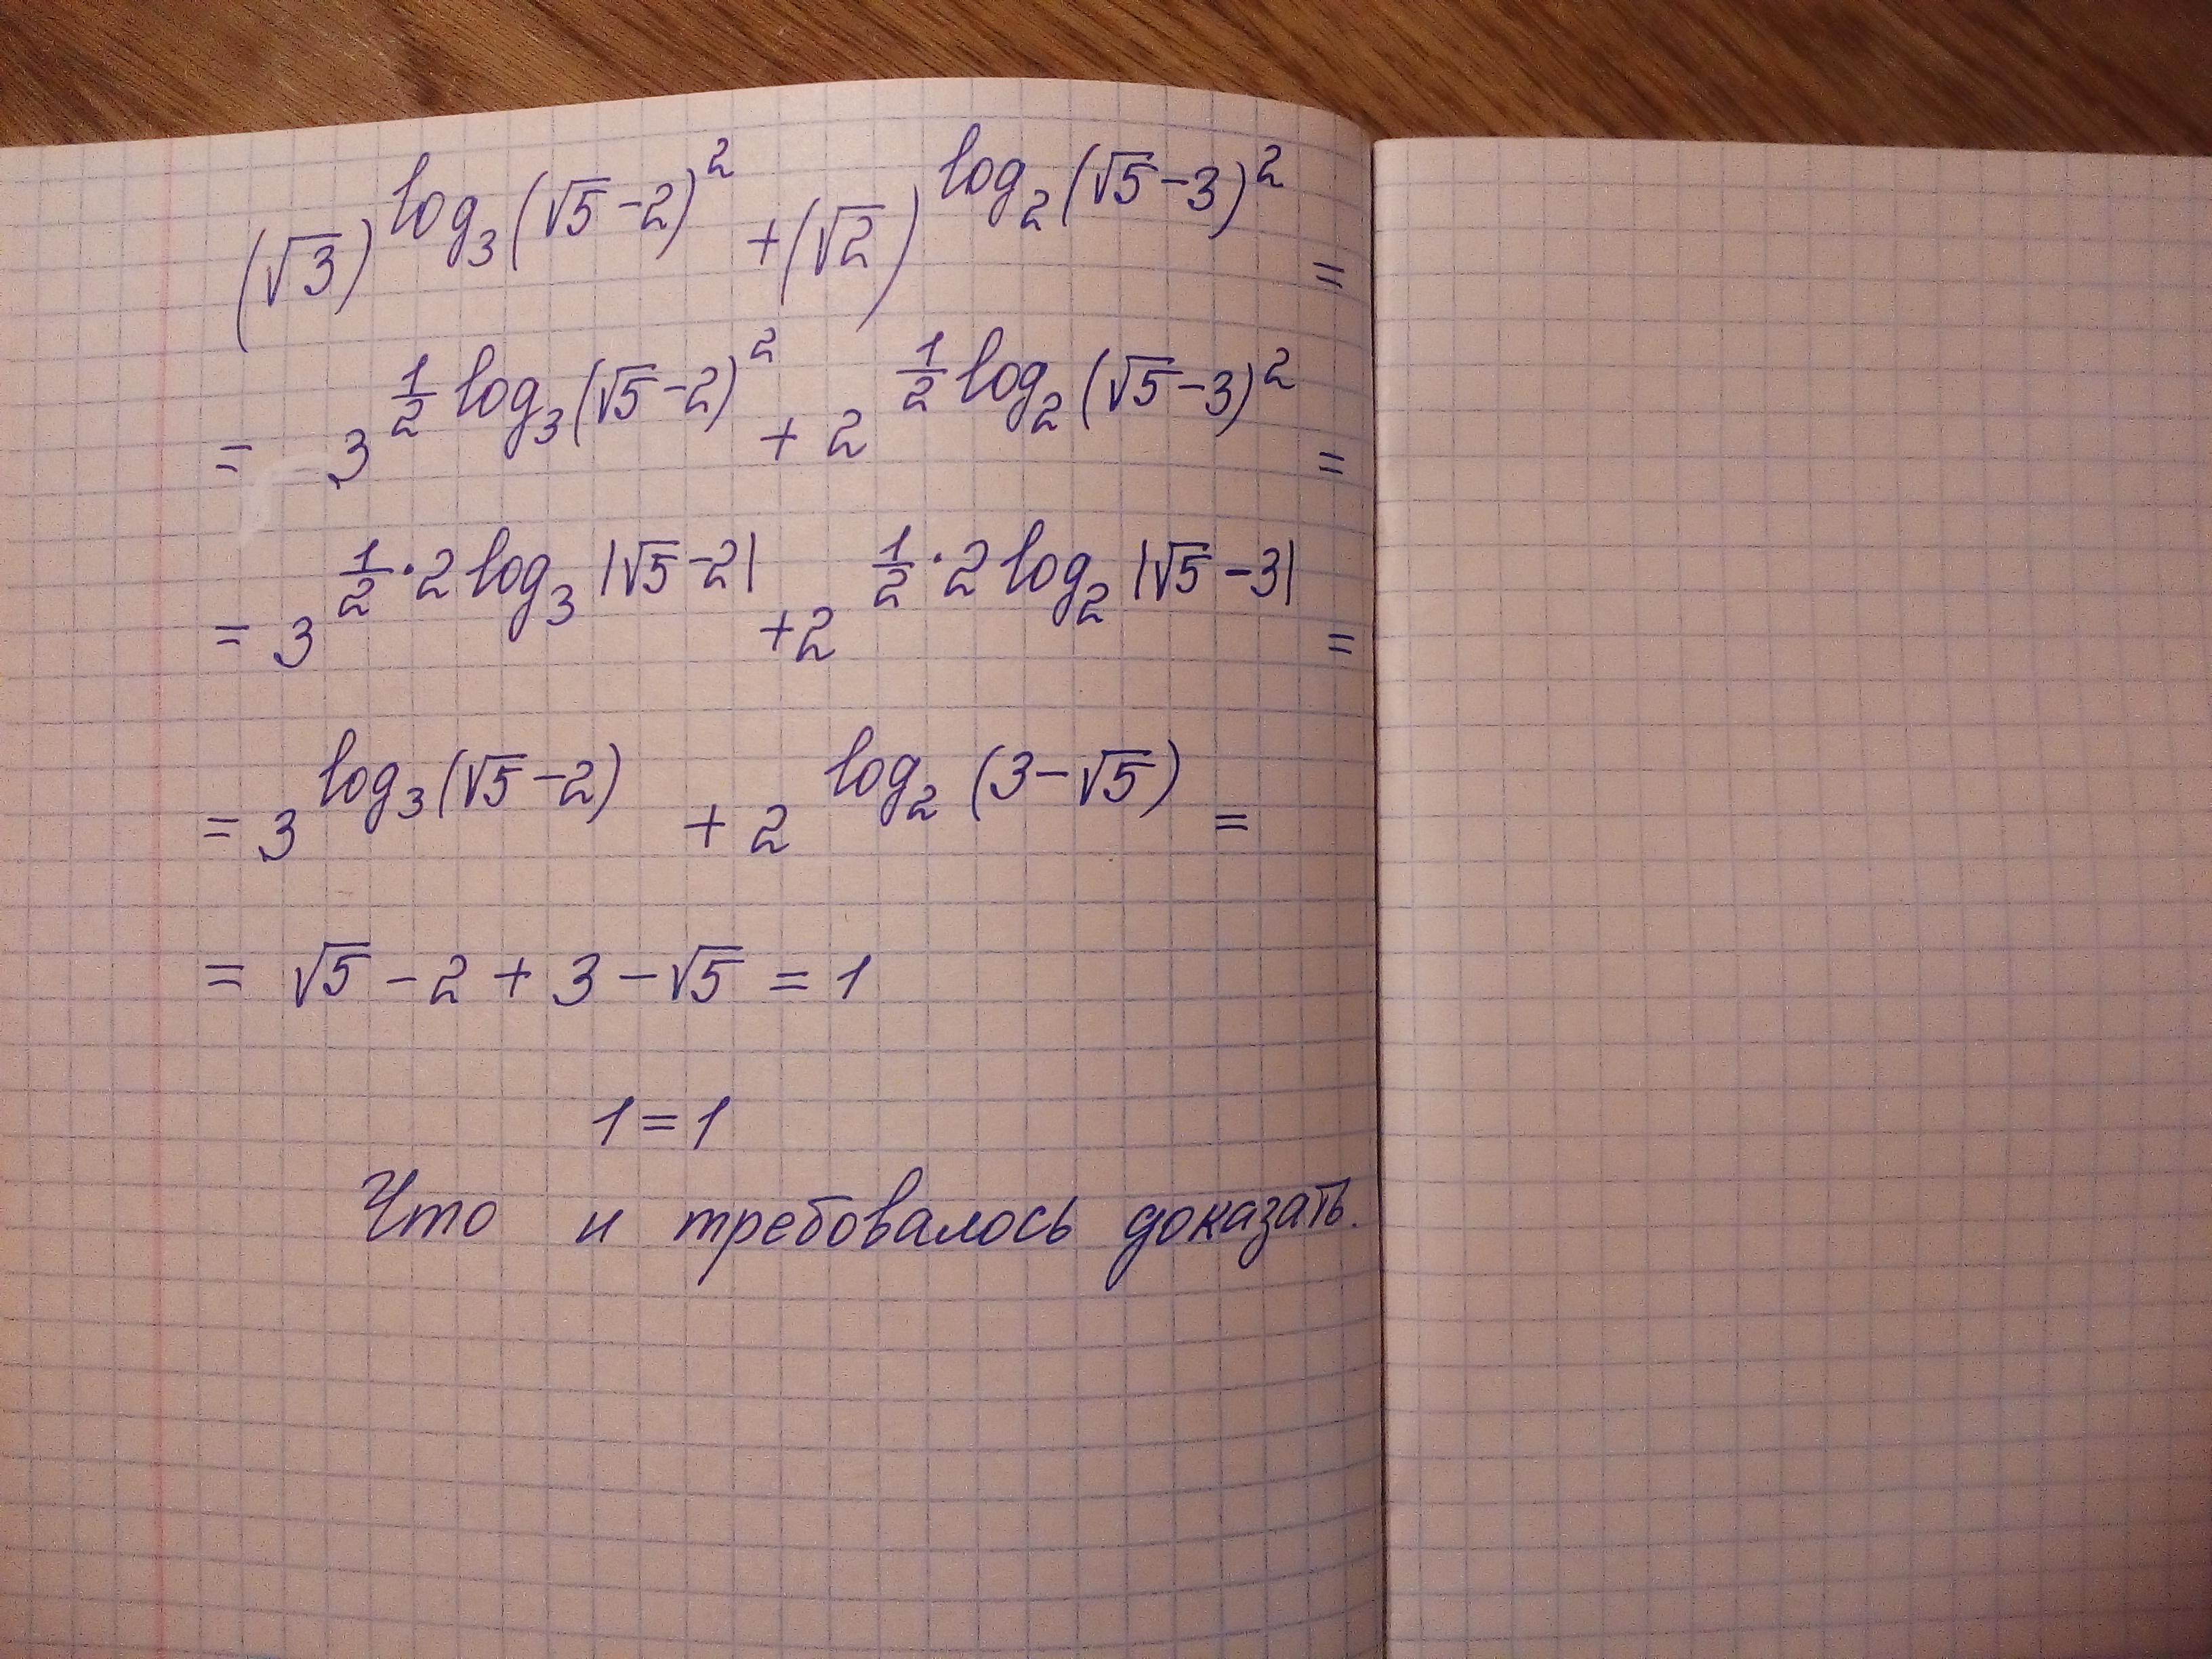 (√3)^{log₃(√5-2)²} + (√2)^{log₂(√5-3)²} =
= 3^{\frac{1}{2} log₃(√5-2)²} + 2^{\frac{1}{2} log₂(√5-3)²} =
= 3^{\frac{1}{2}·2 log₃|√5-2|} + 2^{\frac{1}{2}·2 log₂|√5-3|} =
= 3^{log₃(√5-2)} + 2^{log₂(3-√5)} =
= √5 - 2 + 3 - √5 = 1
1 = 1
Что и требовалось доказать.